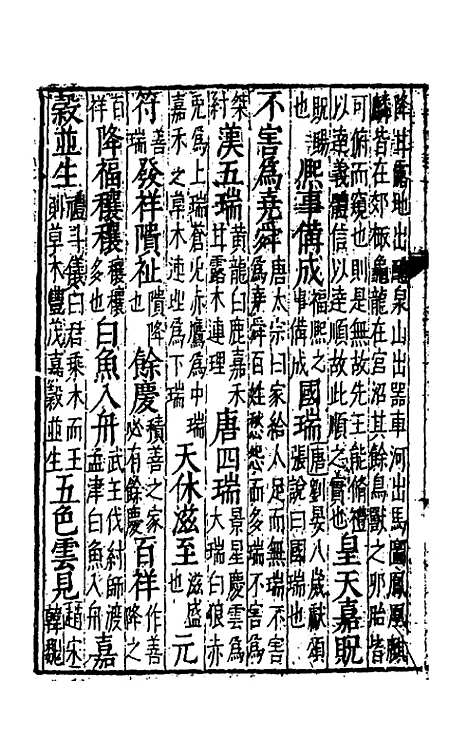 降甘露地出醴泉山出器車河出馬圖鳳凰麒
麟皆在郊棷龜龍在宮沼其餘鳥獸之卵胎皆
可俯而窺也則是無故先王能脩禮
以達義體信以達順故此順之實也
皇天嘉貺
貺賜
也
熙事備成
福熙之
事備成
國瑞
唐劉晏八歲獻頌
張說曰國瑞也
不害為堯舜
唐太宗曰家給人足而無瑞不害
為堯舜百姓愁怨而多瑞不害為
桀
紂
漢五瑞
黃龍白鹿嘉禾
甘露木連理
唐四瑞
景星慶雲為
大瑞白狼赤
兎為上瑞蒼赤鴈為中瑞
嘉禾之草木連理為下瑞
天休滋至
滋盛
也
元
符
善
瑞
發祥隤祉
隤降
也
餘慶
積善之家
必有餘慶
百祥
作善
降之
百
祥
降福穰穰
穰穰
多也
白魚入舟
武王伐紂師渡
孟津白魚入舟
嘉
穀並生
禮斗儀曰君乘木而王
則草木豐茂嘉穀並生
五色雲見
趙宋
韓魏